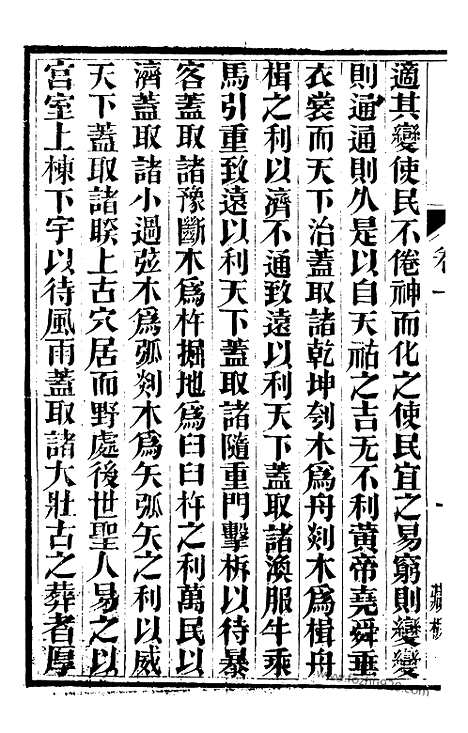 卷一
適其變使民不倦神而化之使民宜之易窮則變變
則通通則久是以自天祐之吉无不利黄帝堯舜垂
衣裳而天下治蓋取諸乾坤刳木爲舟剡木爲楫舟
楫之利以濟不通致遠以利天下蓋取諸渙服牛乘
馬引重致遠以利天下蓋取諸隨重門擊柝以待暴
客蓋取諸豫斷木爲杵掘地爲臼臼杵之利萬民以
濟蓋取諸小過弦木爲弧剡木爲矢弧矢之利以威
天下蓋取諸睽上古穴居而野處後世聖人易之以
宫室上棟下宇以待風雨蓋取諸大壯古之葬者厚